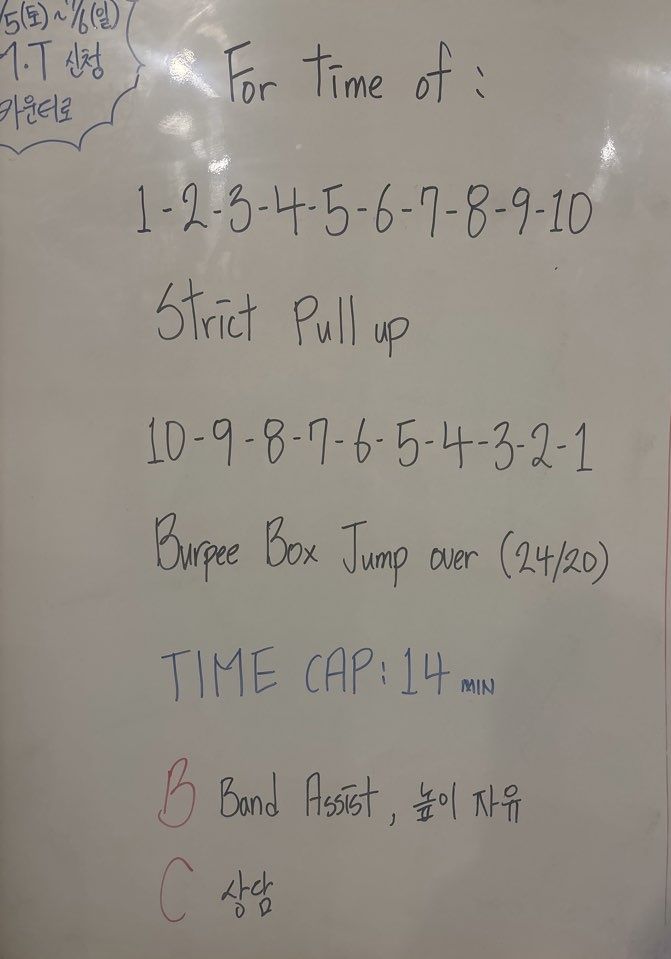 /5(토)~7/6(일)
M.T 신청
카운터로
For Time of :
1-2-3-4-5-6-7-8-9-10
Strict Pull up
10-9-8-7-6-5-4-3-2-1
Burpee Box Jump over (24/20)
TIME CAP: 14 MIN
B Band Assist, 높이 자유
C 상담